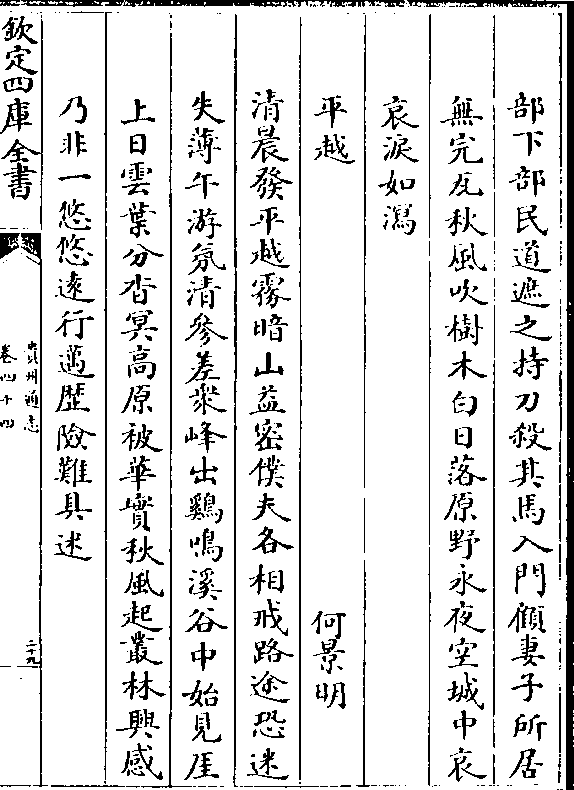 部下部民道遮之持刀殺其馬入門顧妻子所居
無完瓦秋風吹樹木白日落原野永夜空城中哀
哀淚如瀉
平越 何景明
清晨發平越霧暗山益密僕夫各相戒路途恐迷
失薄午游氛清參差衆峰出鷄鳴溪谷中始見厓
上日雲葉分杳冥高原被華實秋風起叢林興感
乃非一悠悠遠行邁歴險難具述
欽定四庫全書
貴州通志
卷四十四
二十九